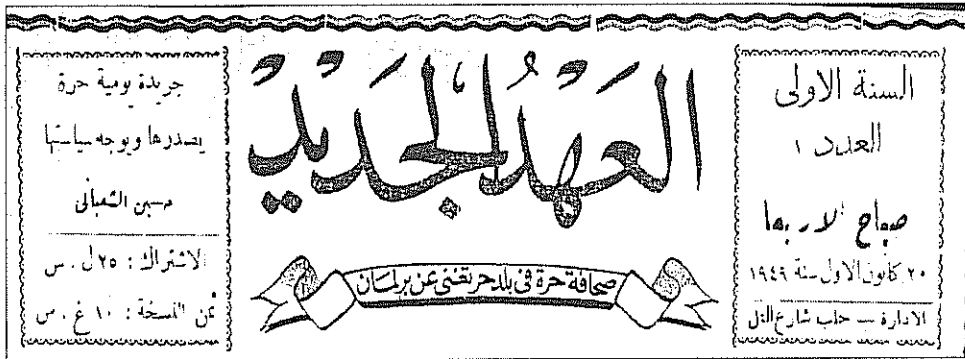 السنة الاولى
العدد ١
صباح الاربعا
٢٠ كانون الاول سنة ١٩٤٩
الادارة — حلب شارع التلل
العهد الجديد
صحافة حرة في بلد حر تغني عن برلمان
جريدة يومية حرة
يصدرها ويوجه سياستها
حسين الشعباني
الاشتراك : ٢٥ ل . س
ثمن النسخة : ١٠ غ . س